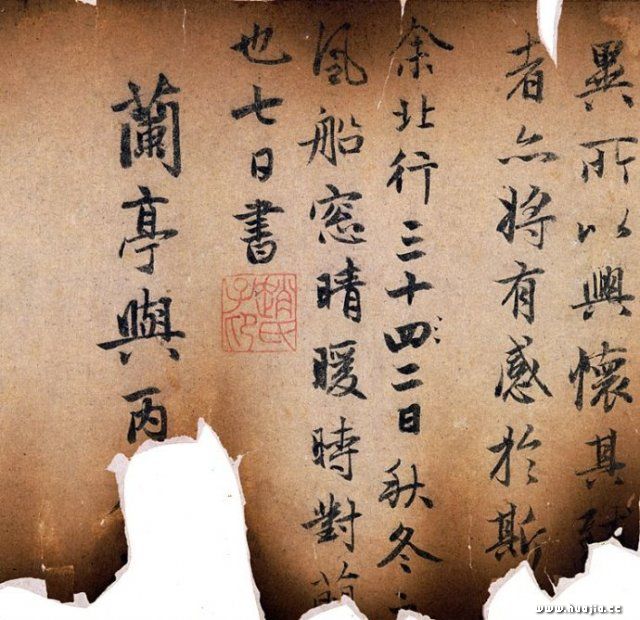 異所以興懷其致
者亦將有感於斯
余北行三十四二日秋冬
風船窓晴暖時對
也七日書
趙氏子昂
蘭亭與丙
www.huajia.cc